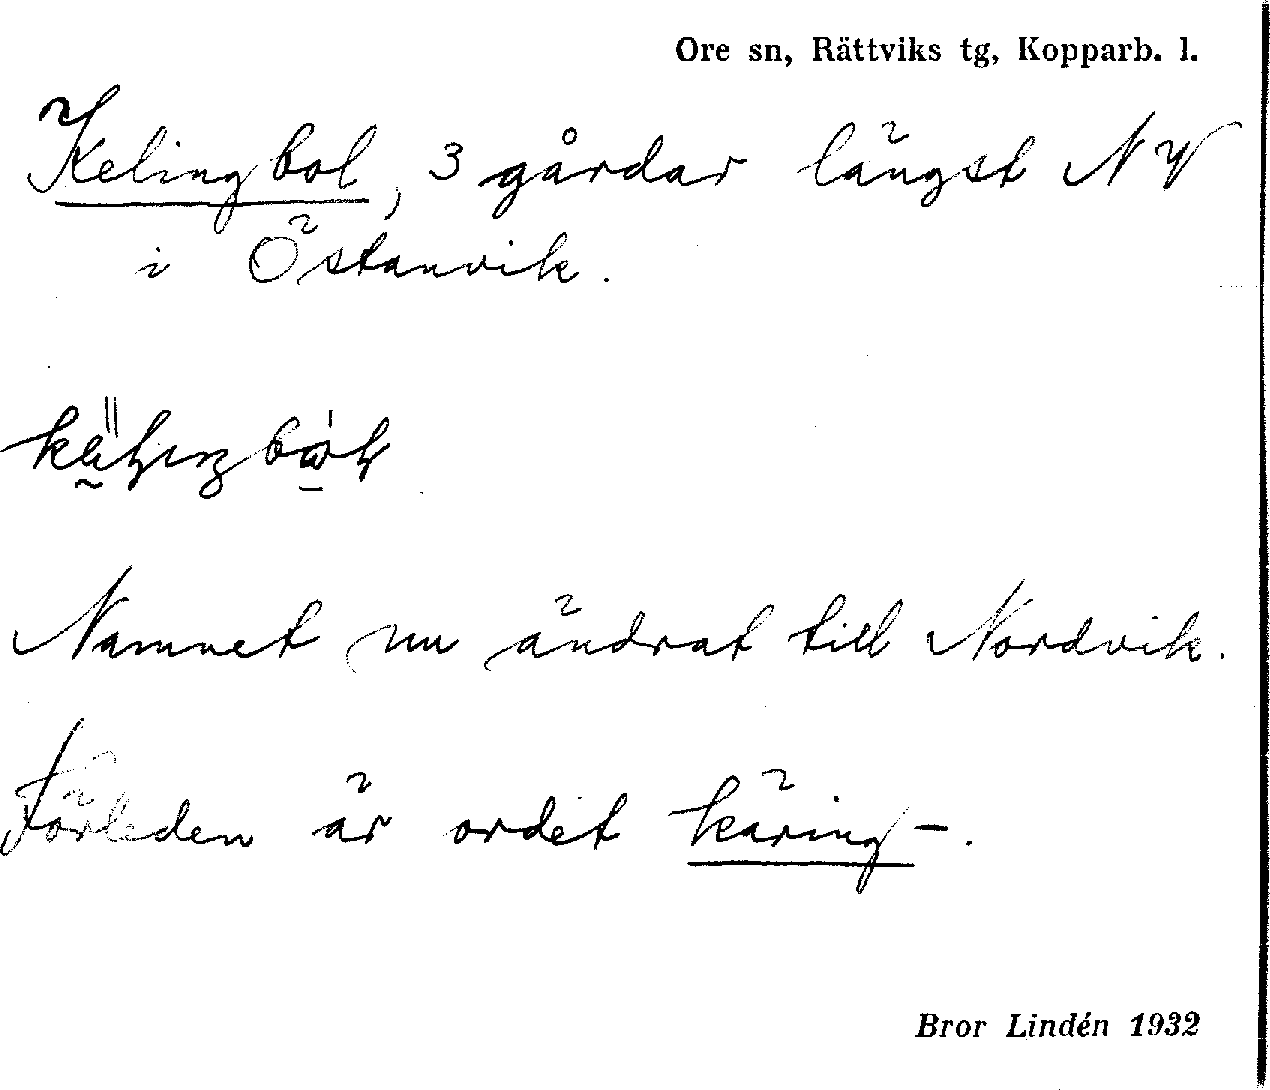 Ore sn, Rättviks tg, Kopparb. l.
Kelingbol, 3 gårdar längst NV
i Östanvik.
Namnet nu ändrat till Nordvik.
Förleden är ordet käring-.
Bror Lindén 1932